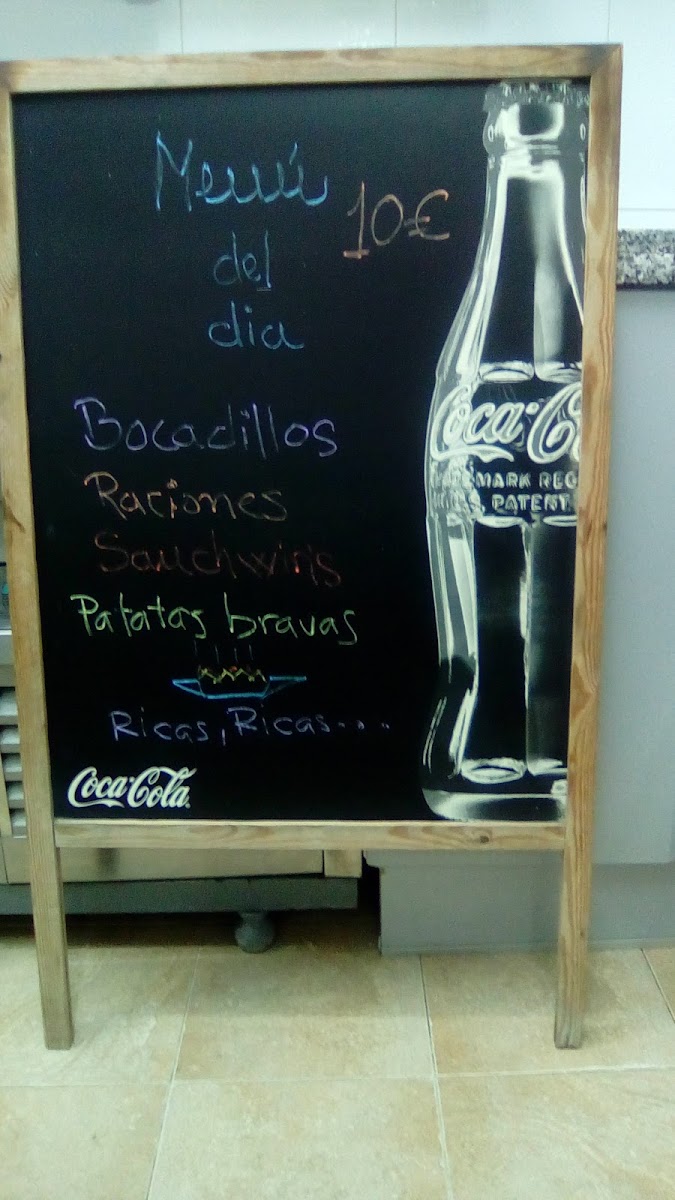 Menú
10€
del
dia
Bocadillos
Raciones
Sauchwiris
Patatas bravas
Ricas, Ricas....
Coca-Cola
Coca-C
MARK REG
S. PATENT